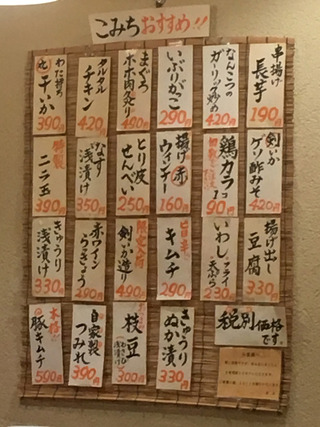 こみちおすすめ!!
串揚げ
長芋
190円
なんこつの
ガーリック炒め
420円
いぶりがっこ
290円
まぐろ
ホホ肉灸り
490円
タルタル
チキン
420円
わた持ち
干いか
390円
剣いか
ゲソ酢みそ
420円
鶏カラ
90円
揚げ赤
ウィンナー
160円
とり皮
せんべい
250円
なす
浅漬け
350円
特製
ニラ玉
390円
揚げ出し
豆腐
330円
いわし
フライ
天ぷら
230円
旨辛
キムチ
290円
剣いか造り
490円
赤ワイン
らっきょう
290円
きゅうり
浅漬け
330円
税別価格
です。
きゅうり
ぬか漬
330円
枝豆
300円
自家製
つみれ
390円
本格
豚キムチ
590円